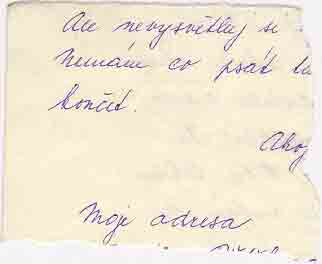 Ale nevysvětluj si
Nemám co psát
končit.
Ahoj
Moje adresa